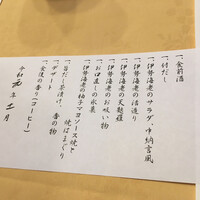 一、食前酒
一、付だし
一、伊勢海老のサラダ、中納言風
一、伊勢海老の活造り
一、伊勢海老の天麩羅
一、伊勢海老のお吸い物
一、お口直しの氷菓
一、伊勢海老の柚子マヨソース焼と
焼はまぐり
一、旨だし茶漬け、香の物
一、デザート
一、食後の香り(コーヒー)
令和元年十一月